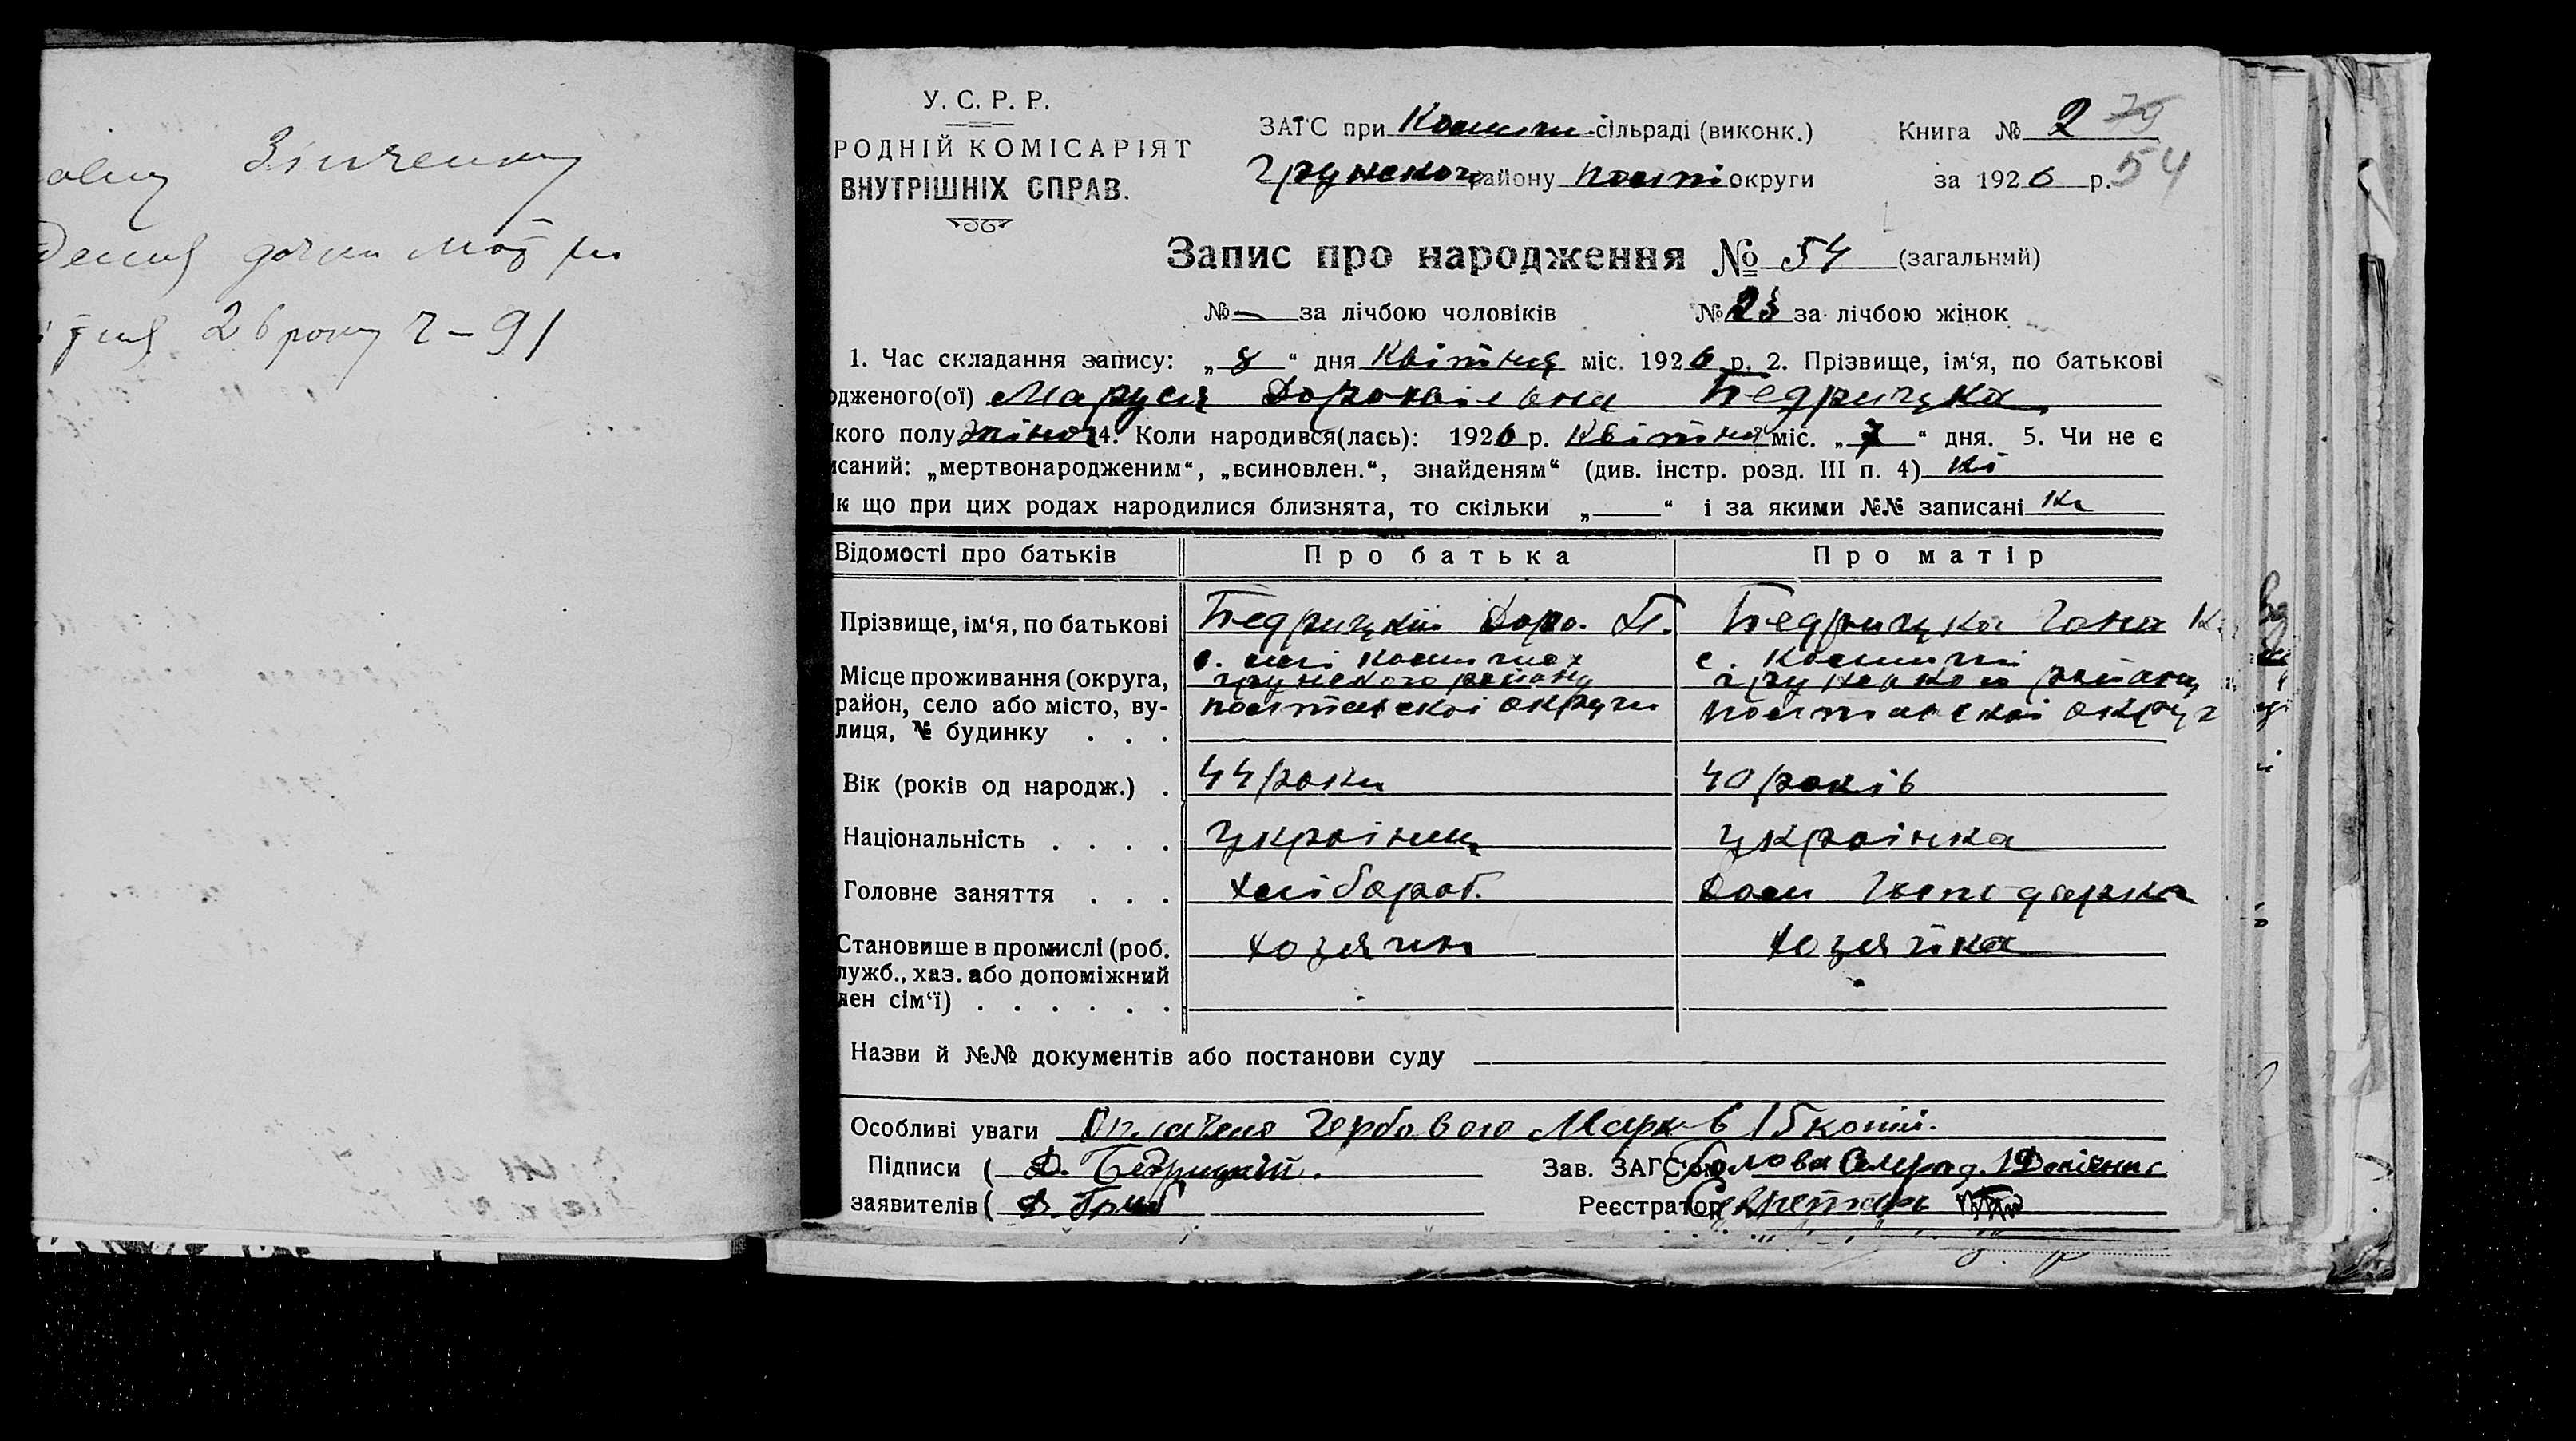 Зінченку
дочки Мотри
26 року ч – 91
У. С. Р. Р.
РОДНІЙ КОМІСАРІЯТ
ВНУТРІШНІХ СПРАВ.
ЗАГС при сільраді (виконк.)
Грунского району Полт округи
Книга № 2 79
за 1926 р. 54
Запис про народження № 54 (загальний)
№ — за лічбою чоловіків № 23 за лічбою жінок
1. Час складання запису: „ 8 “ дня Квітня міс. 1926 р. 2. Прізвище, ім‘я, по батькові
одженого(ої) Маруся Бедрицка
кого полу жіноч 4. Коли народився(лась): 1926 р. Квітня міс. „ 7 “ дня. 5. Чи не є
исаний: „мертвонародженим“, „всиновлен.“, знайденям“ (див. інстр. розд. III п. 4) ні
к що при цих родах народилися близнята, то скільки „ — “ і за якими №№ записані
Відомості про батьків Про батька Про матір
Прізвище, ім‘я, по батькові Бедрицкий Доро. Бедрицка Гана
Місце проживання (округа,
район, село або місто, ву-
лиця, № будинку . . .
грунского району
полтавскоі округи
с.
грунского району
полтавскоі округ
Вік (років од народж.) . 44 роки 40 років
Національність . . . . украінец украінка
Головне заняття . . . хлібороб. Дом Господарка
Становище в промислі (роб.
лужб., хаз. або допоміжний
лен сім‘ї) . . . . . .
хозяин хозяйка
Назви й №№ документів або постанови суду
Особливі уваги Оплачено Гербовою Марк в 15 копій.
Підписи ( Д. Бедрицкій. Зав. ЗАГС‘ом Голова Сельрад.
заявителів ( Реєстратор Секретарь